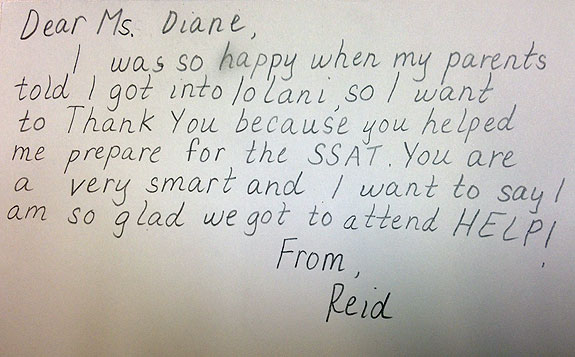 Dear Ms. Diane,
I was so happy when my parents
told I got into Iolani, so I want
to Thank You because you helped
me prepare for the SSAT. You are
a very smart and I want to say I
am so glad we got to attend HELP!
From,
Reid